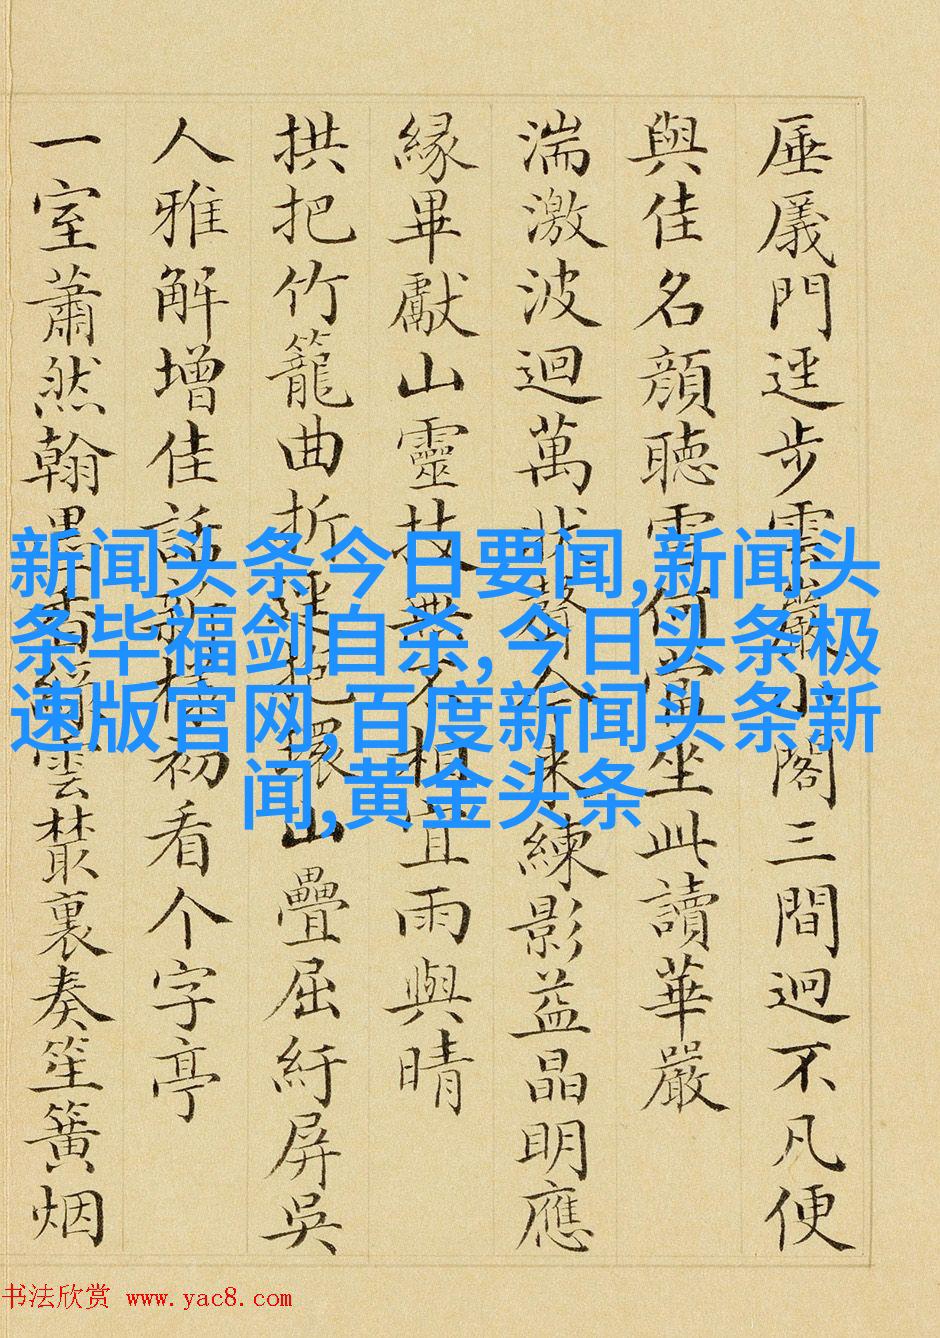 厜㕒門逕步雲巖小閣三間迥不凡便
與佳名顏聽雪何當坐此讀華嚴
湍激波迴萬狀聲今來練影益晶明應
緣畢獻山靈技無不相宜雨與晴
拱把竹籠曲折環山疊屈紆屏吳
人雅解增佳話新樣初看个字亭
一室蕭然翰墨香雲藂裏奏笙簧烟
新闻头条今日要闻,新闻头
条毕福剑自杀,今日头条极
速版官网,百度新闻头条新
闻,黄金头条
书法欣赏 www.yac8.com